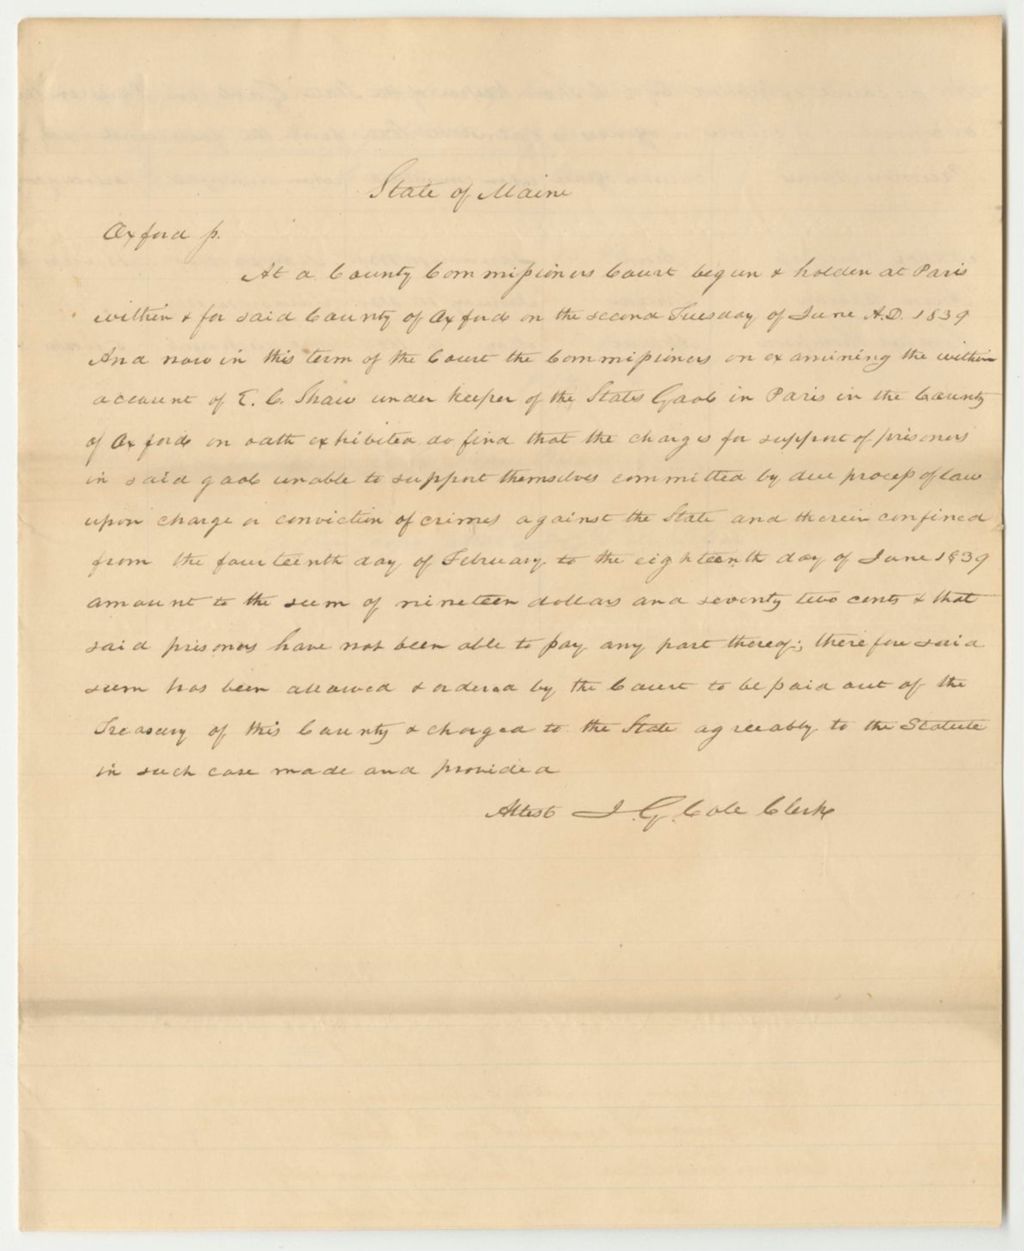 State of Maine
Oxford ss.
At a County Commissioners Court begun & holden at Paris
within & for said County of Oxford on the second Tuesday of June A.D. 1839
And now in this term of the Court the Commissioners on examining the within
account of E. C. Shaw under keeper of the States Gaol in Paris in the County
of Oxford on oath exhibited do find that the charges for support of prisoners
in said gaol unable to support themselves committed by due process of law
upon charge or conviction of crimes against the State and therein confined
from the fourteenth day of February to the eighteenth day of June 1839
amount to the sum of nineteen dollars and seventy two cents & that
said prisoners have not been able to pay any part thereof; therefore said
sum has been allowed & ordered by the Court to be paid out of the
Treasury of this County & charged to the State agreeably to the Statute
in such case made and provided
Attest J. G. Cole Clerk